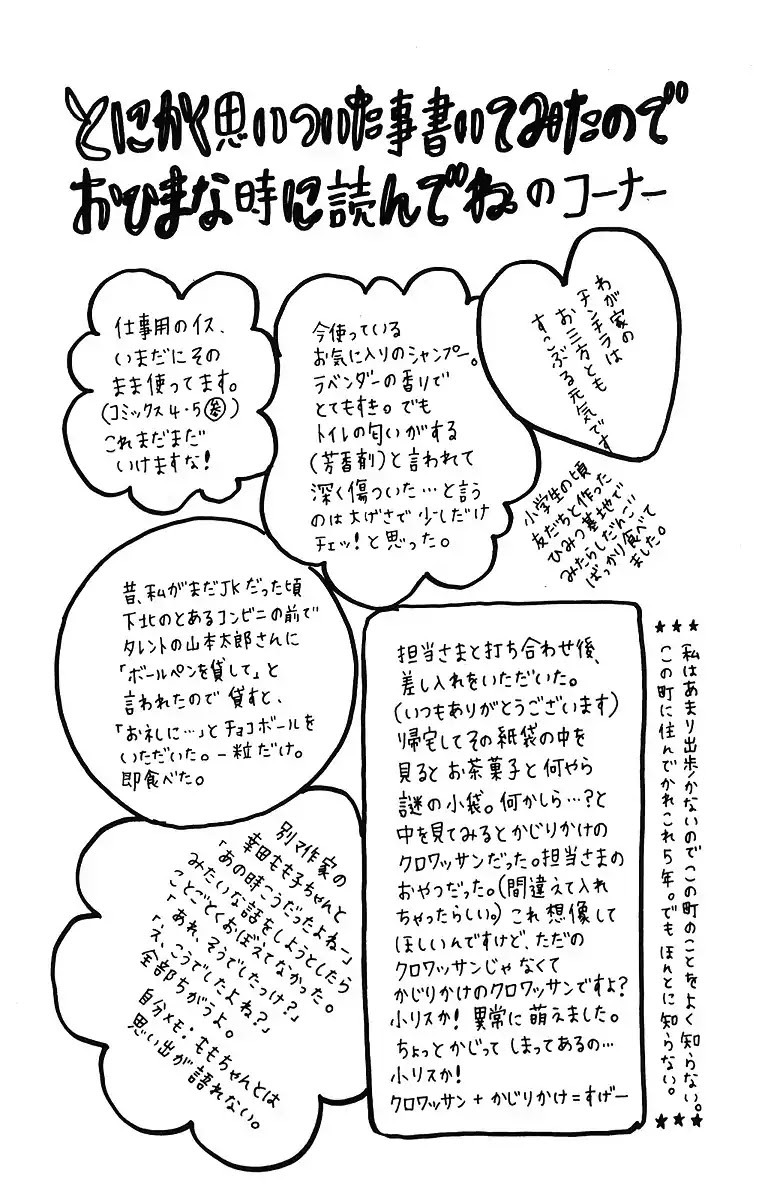 とにかく思いついた事書いてみたので
おひまな時に読んでね。のコーナー
わが家の
チンチラは
お三方とも
すこぶる元気です
今使っている
お気に入りのシャンプー。
ラベンダーの香りで
とてもすき。でも
トイレの匂いがする
(芳香剤)と言われて
深く傷ついた…と言う
のは大げさで少しだけ
チェッ!と思った。
仕事用のイス、
いまだにその
まま使ってます。
(コミックス4・5参)
これまだまだ
いけますな!
小学生の頃
友だちと作った
ひみつ基地で
みたらしだんご
ばっかり食べて
ました。
昔、私がまだJKだった頃
下北のとあるコンビニの前で
タレントの山本太郎さんに
「ボールペンを貸して」と
言われたので貸すと、
「お礼に…」とチョコボールを
いただいた。一粒だけ。
即食べた。
★★★
私はあまり出歩かないのでこの町のことをよく知らない。
この町に住んでかれこれ5年。でもほんとに知らない。
★★★
担当さまと打ち合わせ後、
差し入れをいただいた。
(いつもありがとうございます)
帰宅してその紙袋の中を
見るとお茶菓子と何やら
謎の小袋。何かしら…?と
中を見てみるとかじりかけの
クロワッサンだった。担当さまの
おやつだった。(間違えて入れ
ちゃったらしい。)これ想像して
ほしいんですけど、ただの
クロワッサンじゃなくて
かじりかけのクロワッサンですよ?
小リスか!異常に萌えました。
ちょっとかじってしまってあるの…
小リスか!
クロワッサン+かじりかけ=すげー
別マ作家の
幸田もも子ちゃんと
「あの時こうだったよねー」
みたいな話をしようとしたら
ことごとくおぼえてなかった。
「あれ、そうでしたっけ?」
「え、こうでしたよね?」
全部ちがうよ。
自分メモ:ももちゃんとは
思い出が語れない。